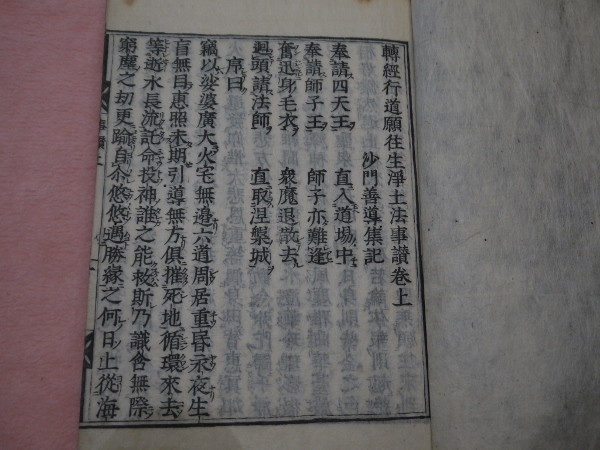 轉經行道願往生淨土法事讚卷上
沙門善導集記
奉請四天王　直入道場中
奉請師子王　師子亦難逢
奮迅身毛衣　衆魔退散去
迴頭請法師　直取涅槃城
序曰
竊以娑婆廣大火宅無邊六道周居重昬永夜生
盲無目惠照未期引導無方俱摧死地循環來去
等逝水長流託命投神誰之能救斯乃識含無際
窮塵之刧更踰自尒悠悠遇勝緣之何日上從海